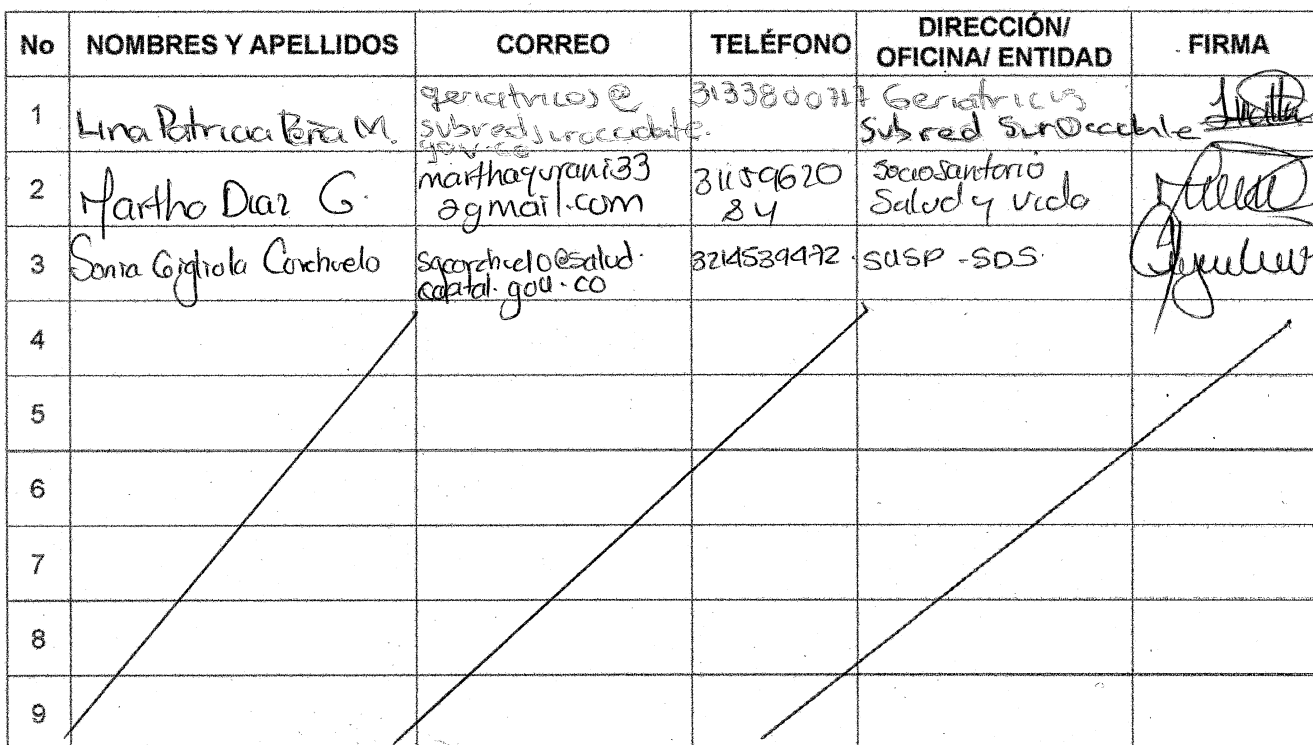 No NOMBRES Y APELLIDOS CORREO TELÉFONO DIRECCIÓN/ OFICINA/ ENTIDAD FIRMA
1 Lina Patricia Peña M. geriatricos@ subredsuroccidente. gov.co 3133800717 Geriatricos Subred SurOccidente
2 Martha Diaz G. 31159620 84 Sociosanitario Salud y Vida
3 Sonia Gigliola Corchuelo sgcorchuelo@salud. capital.gov.co 3214539472 SUSP-SDS.
4
5
6
7
8
9